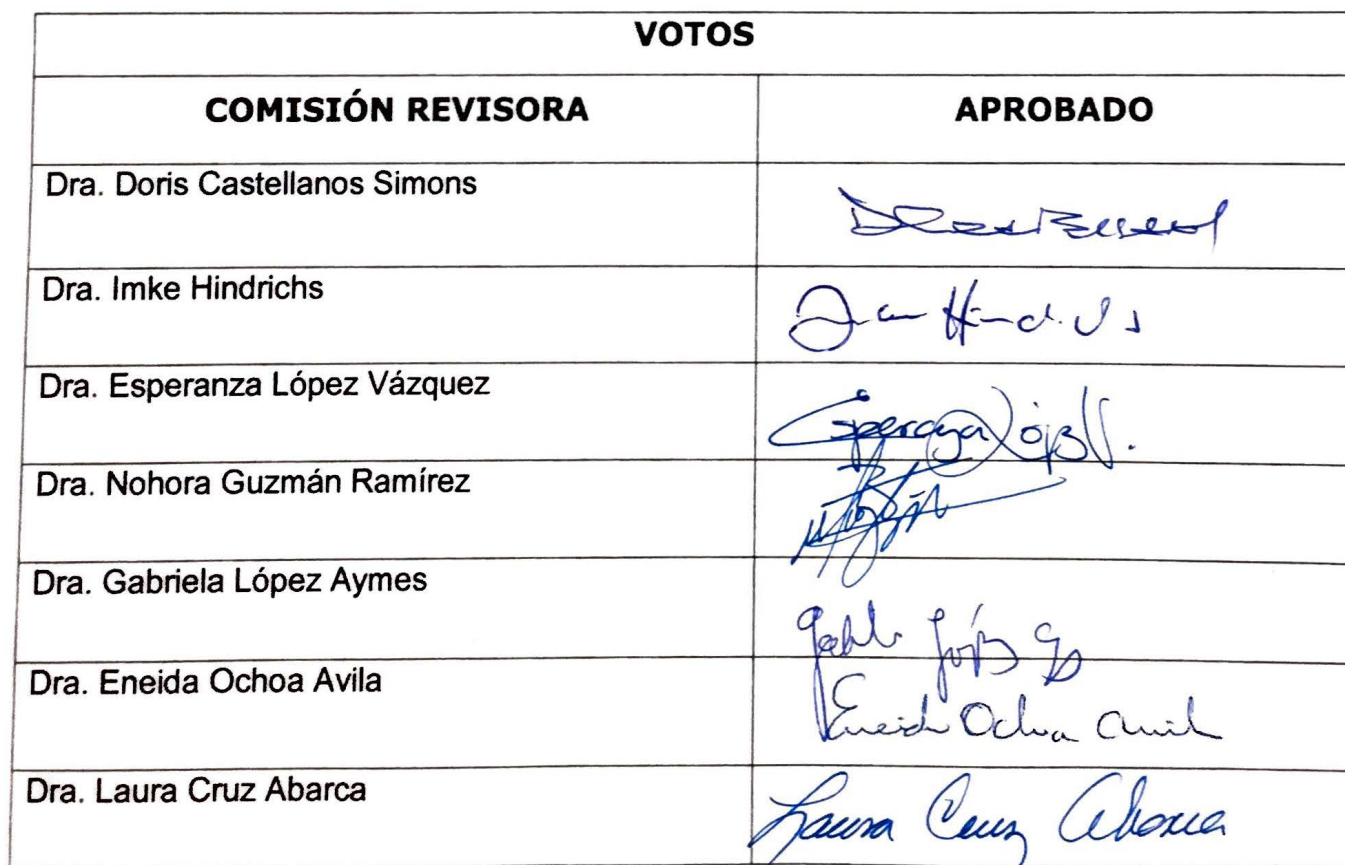 VOTOS
COMISIÓN REVISORA APROBADO
Dra. Doris Castellanos Simons
Dra. Imke Hindrichs
Dra. Esperanza López Vázquez
Esperanza López V.
Dra. Nohora Guzmán Ramírez
Dra. Gabriela López Aymes
Dra. Eneida Ochoa Avila
Eneida Ochoa Avila
Dra. Laura Cruz Abarca
Laura Cruz Abarca